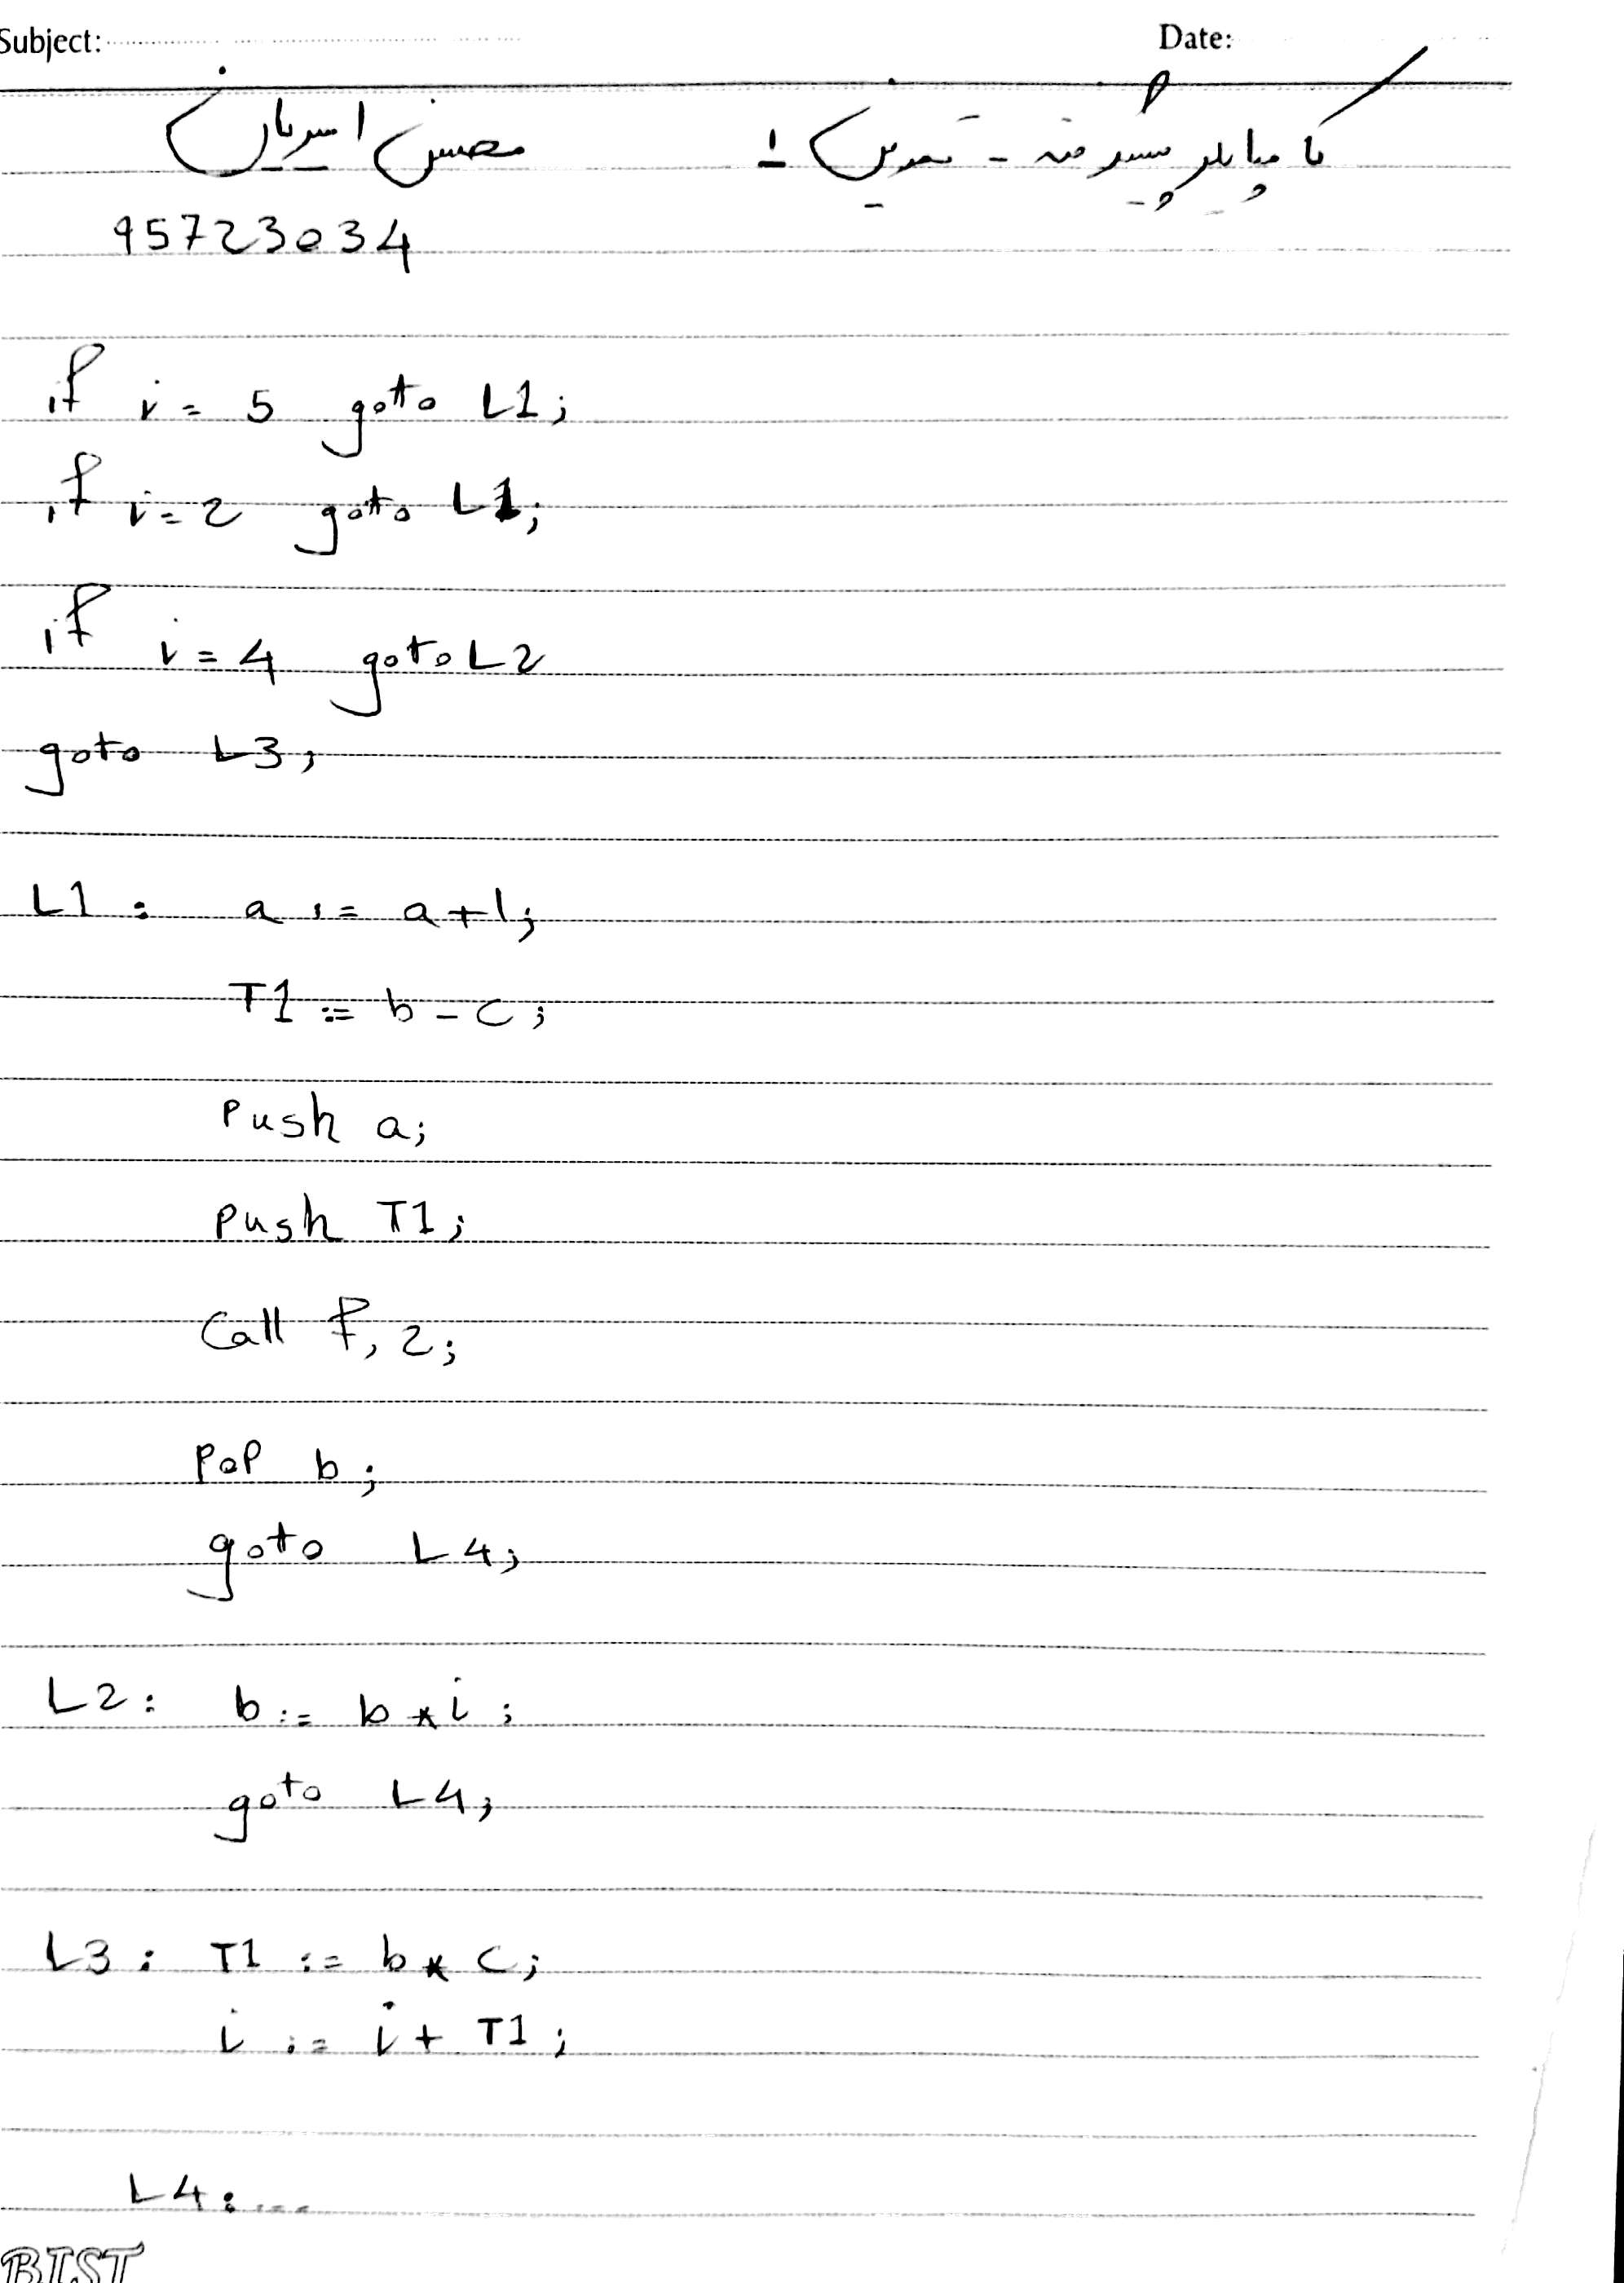 Subject: Date:
کامپایلر پیشرفته - تمرین ۱ محسن امیریان
95723034
if i = 5 goto L1;
if i = 2 goto L1;
if i = 4 goto L2
goto L3;
L1 : a := a + 1;
T1 := b - c;
Push a;
Push T1;
Call f, 2;
Pop b;
goto L4;
L2 : b := b * i ;
goto L4;
L3 : T1 := b * c;
i := i + T1 ;
L4 : ...
BIST